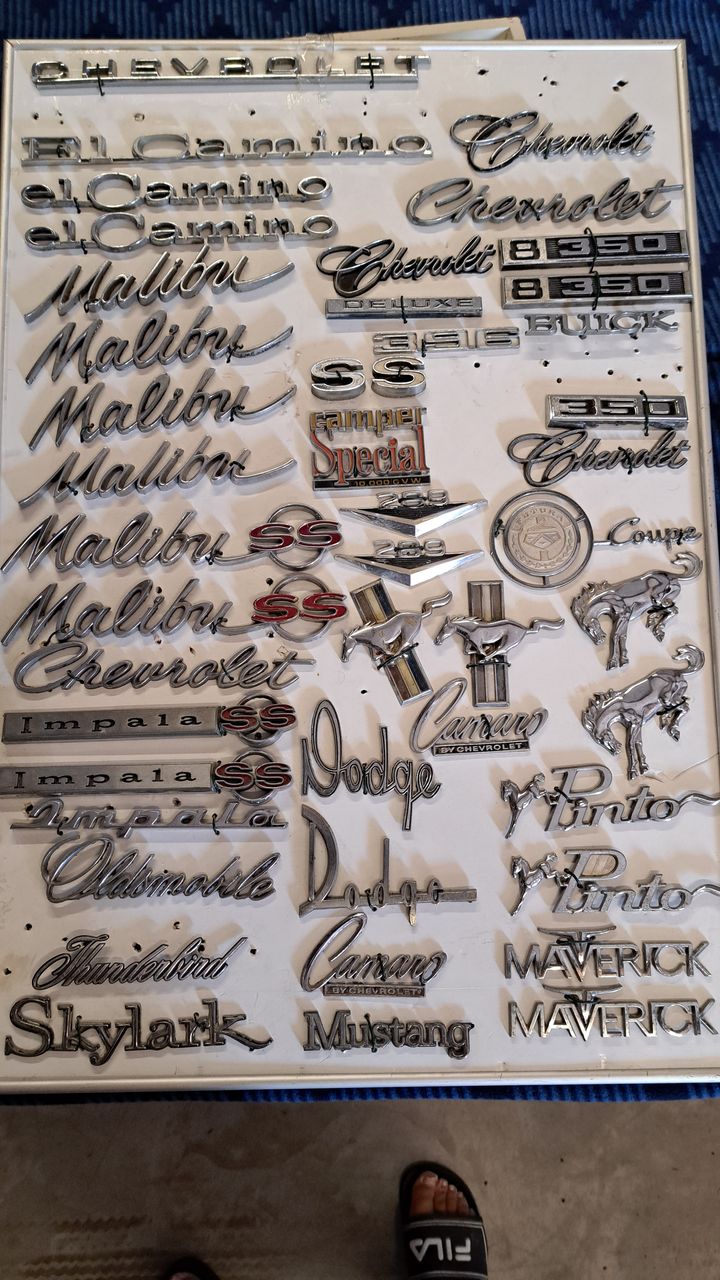 CHEVROLET
El Camino
Chevrolet
el Camino
Chevrolet
el Camino
Chevrolet
8 350
Malibu
DELUXE
8 350
BUICK
Malibu
396
SS
350
Malibu
camper
Special
10,000 G.V.W.
Chevrolet
Malibu
289
FUTURA
Coupe
Malibu SS
289
Malibu SS
Chevrolet
Impala SS
Camaro
BY CHEVROLET
Dodge
Impala SS
Pinto
Impala
Oldsmobile
Dodge
Pinto
Thunderbird
Camaro
BY CHEVROLET
MAVERICK
Skylark
Mustang
MAVERICK
FILA